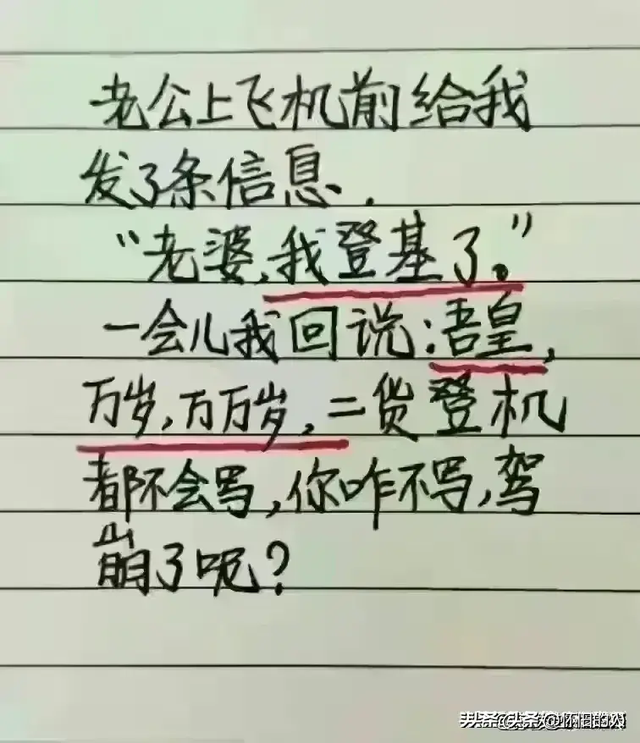 老公上飞机前给我
发了条信息.
“老婆,我登基了。”
一会儿我回说:吾皇,
万岁,万万岁,二货登机
都不会写,你咋不写,驾
崩了呢?